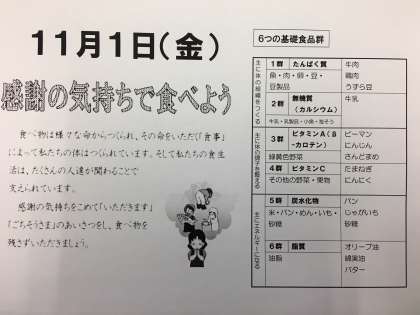 11月1日(金)
感謝の気持ちで食べよう
食べ物は様々な命からつくられ、その命をいただく「食事」
によって私たちの体はつくられています。そして私たちの食生
活は、たくさんの人達が関わることで
支えられています。
感謝の気持ちをこめて「いただきます」
「ごちそうさま」のあいさつをし、食べ物を
残さずいただきましょう。
6つの基礎食品群
主に体の組織をつくる
1群 たんぱく質
魚・肉・卵・豆・
豆製品
牛肉
鶏肉
うずら豆
2群 無機質
(カルシウム)
牛乳・乳製品・小魚・海そう
牛乳
主に体の調子を整える
3群 ビタミンA(B-
カロテン)
緑黄色野菜
ピーマン
にんじん
さんどまめ
4群 ビタミンC
その他の野菜・果物
たまねぎ
にんにく
主にエネルギーになる
5群 炭水化物
米・パン・めん・いも・
砂糖
パン
じゃがいも
砂糖
6群 脂質
油脂
オリーブ油
綿実油
バター